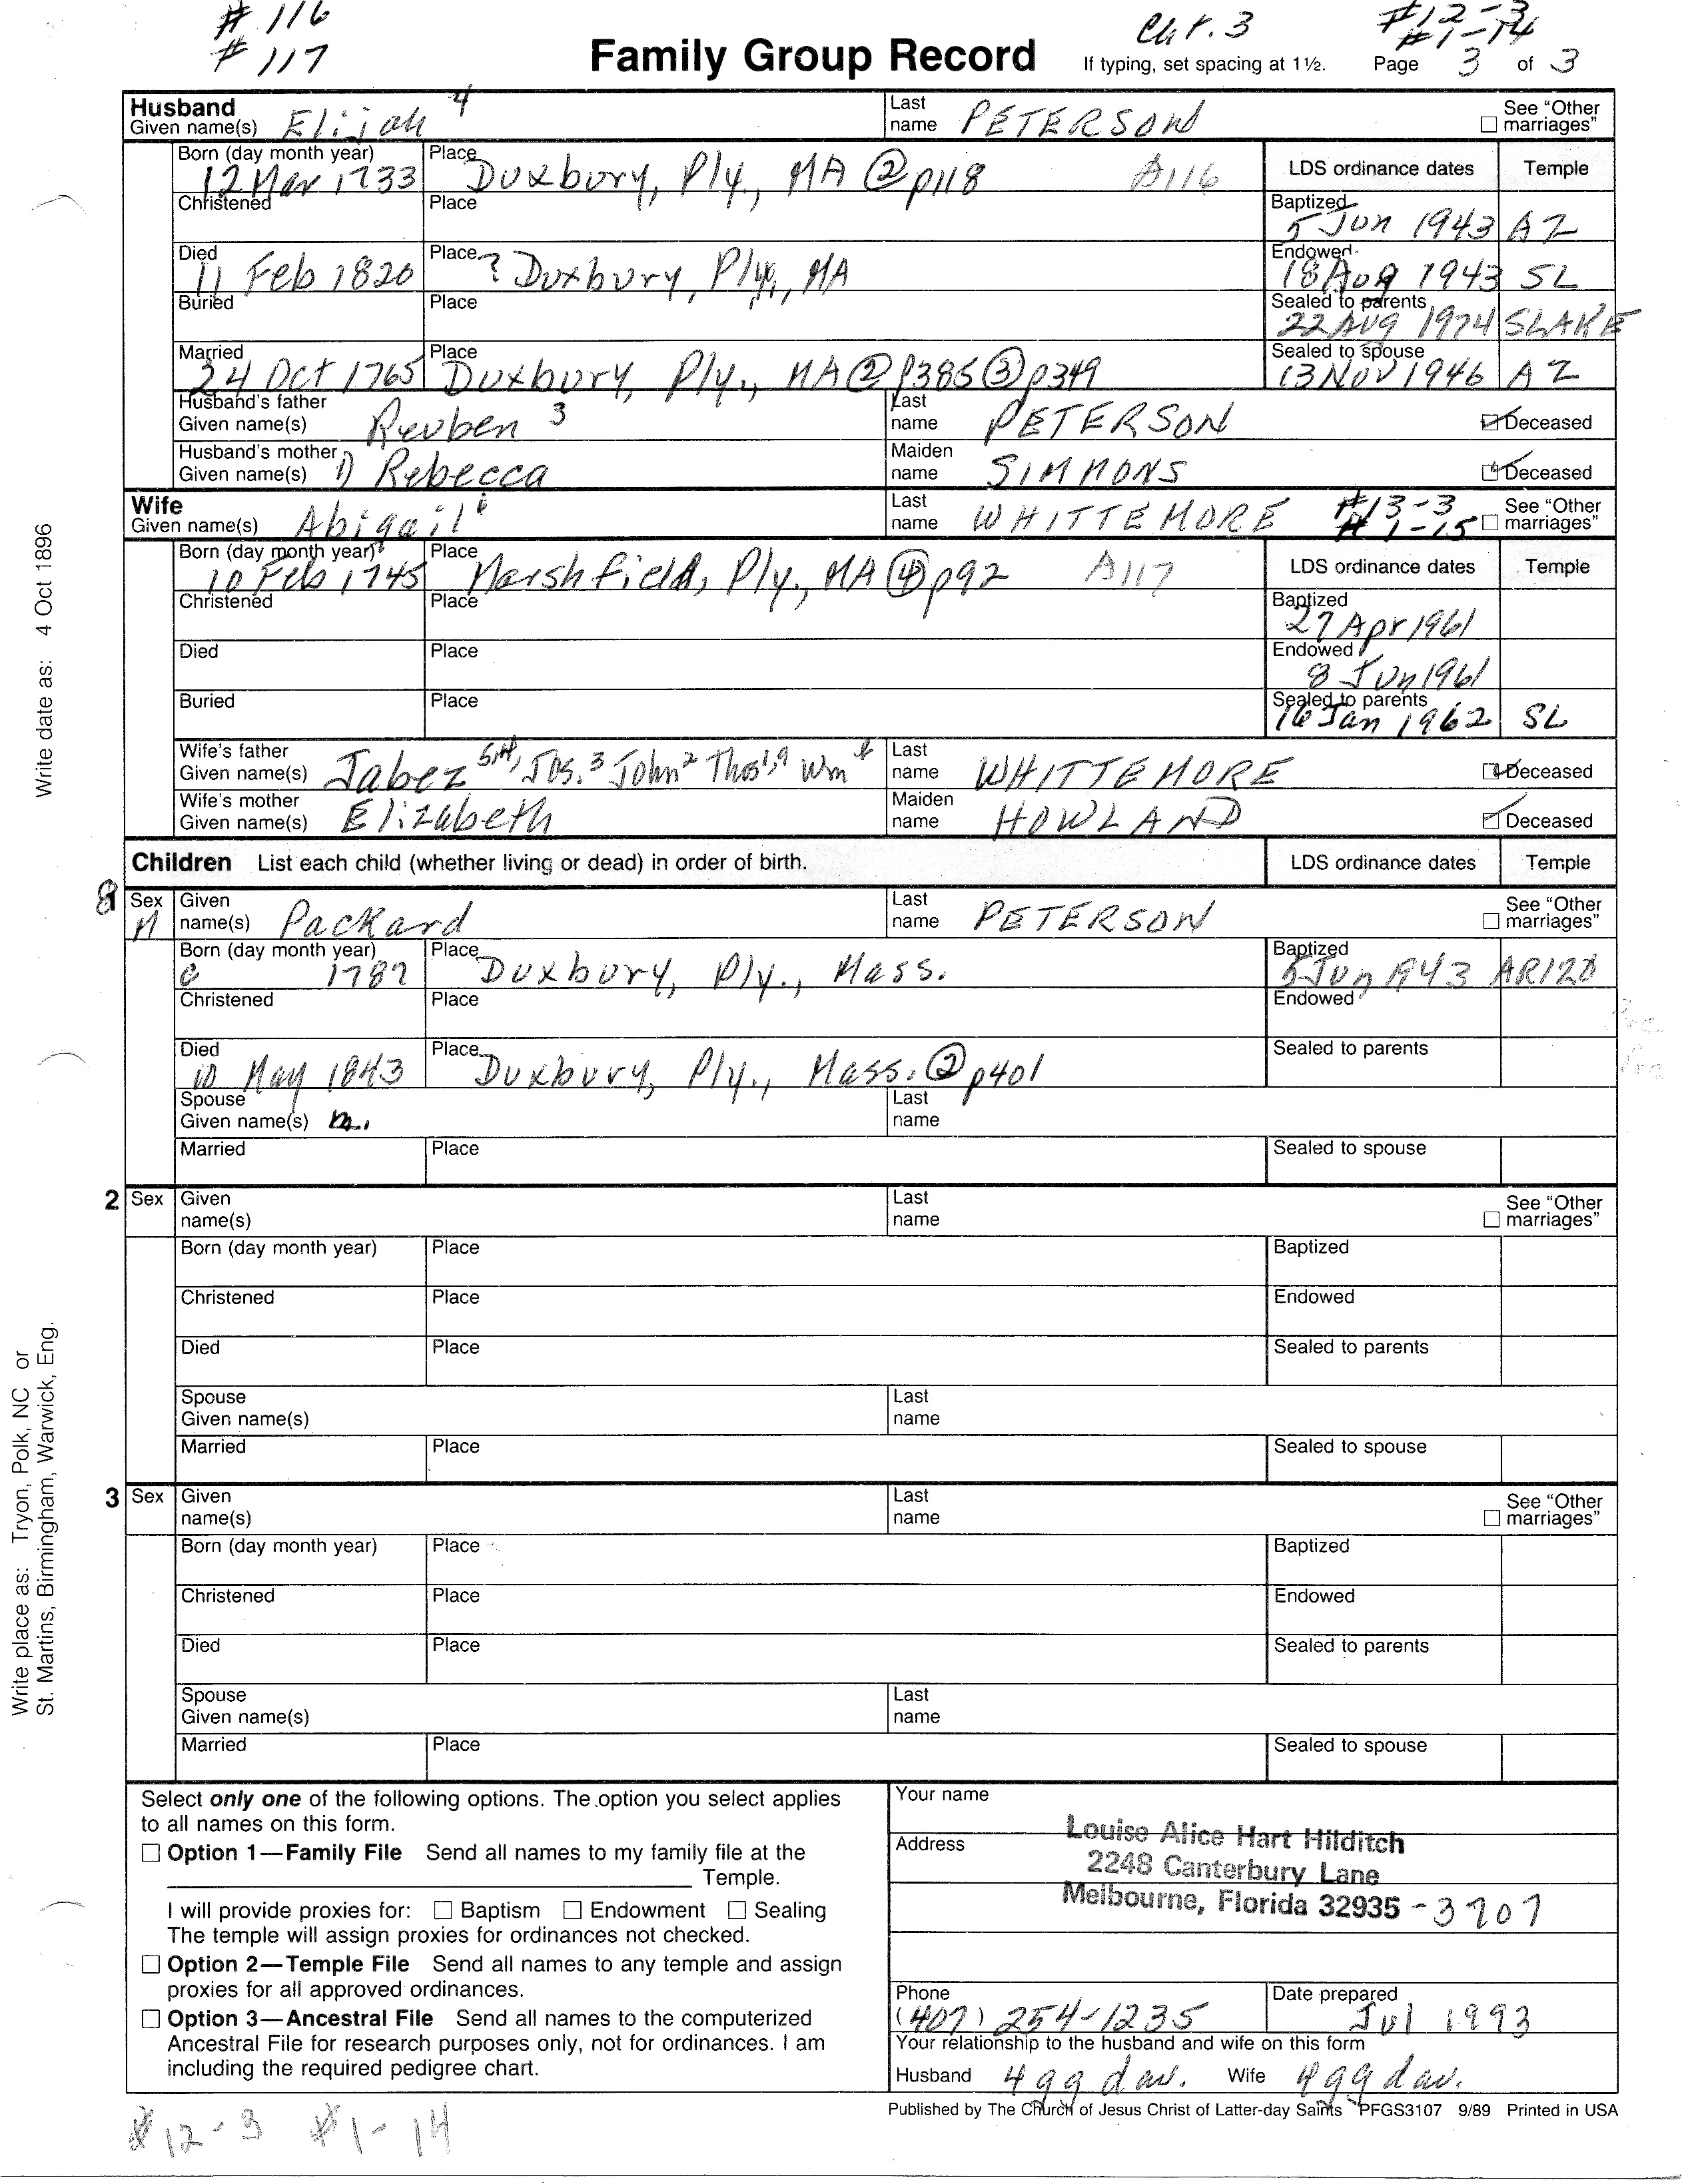 # 116
# 117
Family Group Record
Cht. 3
If typing, set spacing at 1½.
#12-3
#1-14
Page 3 of 3
Husband
Given name(s) Elijah 4
Last name PETERSON
See "Other marriages"
Born (day month year) 12 Mar 1733
Place Duxbury, Ply., MA ② p118 A116
LDS ordinance dates Temple
Christened Place
Baptized 5 Jun 1943 AZ
Died 11 Feb 1820
Place ? Duxbury, Ply., MA
Endowed 18 Aug 1943 SL
Buried Place
Sealed to parents 22 AUG 1974 SLAKE
Married 24 Oct 1765
Place Duxbury, Ply., MA ② p385 ③ p349
Sealed to spouse 13 Nov 1946 AZ
Husband's father
Given name(s) Reuben 3
Last name PETERSON
Deceased
Husband's mother
Given name(s) 1) Rebecca
Maiden name SIMMONS
Deceased
Wife
Given name(s) Abigail 6
Last name WHITTEMORE
#13-3
#1-15
See "Other marriages"
Born (day month year) 10 Feb 1745
Place Marshfield, Ply., MA ④ p92 A117
LDS ordinance dates Temple
Christened Place
Baptized 27 Apr 1961
Died Place
Endowed 8 Jun 1961
Buried Place
Sealed to parents 16 Jan 1962 SL
Wife's father
Given name(s) Jabez 5 Jos. 3 John 2 Thos 1, 9 Wm
Last name WHITTEMORE
Deceased
Wife's mother
Given name(s) Elizabeth
Maiden name HOWLAND
Deceased
Children List each child (whether living or dead) in order of birth.
LDS ordinance dates Temple
8 Sex M
Given name(s) Packard
Last name PETERSON
See "Other marriages"
Born (day month year) c 1787
Place Duxbury, Ply., Mass.
Baptized 5 Jun 1943 ARIZO
Christened Place
Endowed
Died 10 May 1843
Place Duxbury, Ply., Mass. ② p401
Sealed to parents
Spouse
Given name(s) m.
Last name
Married Place
Sealed to spouse
2 Sex
Given name(s)
Last name
See "Other marriages"
Born (day month year) Place
Baptized
Christened Place
Endowed
Died Place
Sealed to parents
Spouse
Given name(s)
Last name
Married Place
Sealed to spouse
3 Sex
Given name(s)
Last name
See "Other marriages"
Born (day month year) Place
Baptized
Christened Place
Endowed
Died Place
Sealed to parents
Spouse
Given name(s)
Last name
Married Place
Sealed to spouse
Write date as: 4 Oct 1896
Write place as: Tryon, Polk, NC or
St. Martins, Birmingham, Warwick, Eng.
Select only one of the following options. The option you select applies
to all names on this form.
Option 1—Family File Send all names to my family file at the
Temple.
I will provide proxies for: Baptism Endowment Sealing
The temple will assign proxies for ordinances not checked.
Option 2—Temple File Send all names to any temple and assign
proxies for all approved ordinances.
Option 3—Ancestral File Send all names to the computerized
Ancestral File for research purposes only, not for ordinances. I am
including the required pedigree chart.
Your name
Louise Alice Hart Hilditch
Address
2248 Canterbury Lane
Melbourne, Florida 32935 - 3707
Phone
(407) 254-1235
Date prepared
Jul 1993
Your relationship to the husband and wife on this form
Husband 4 gg dau. Wife 4 gg dau.
Published by The Church of Jesus Christ of Latter-day Saints PFGS3107 9/89 Printed in USA
#12-3 #1-14